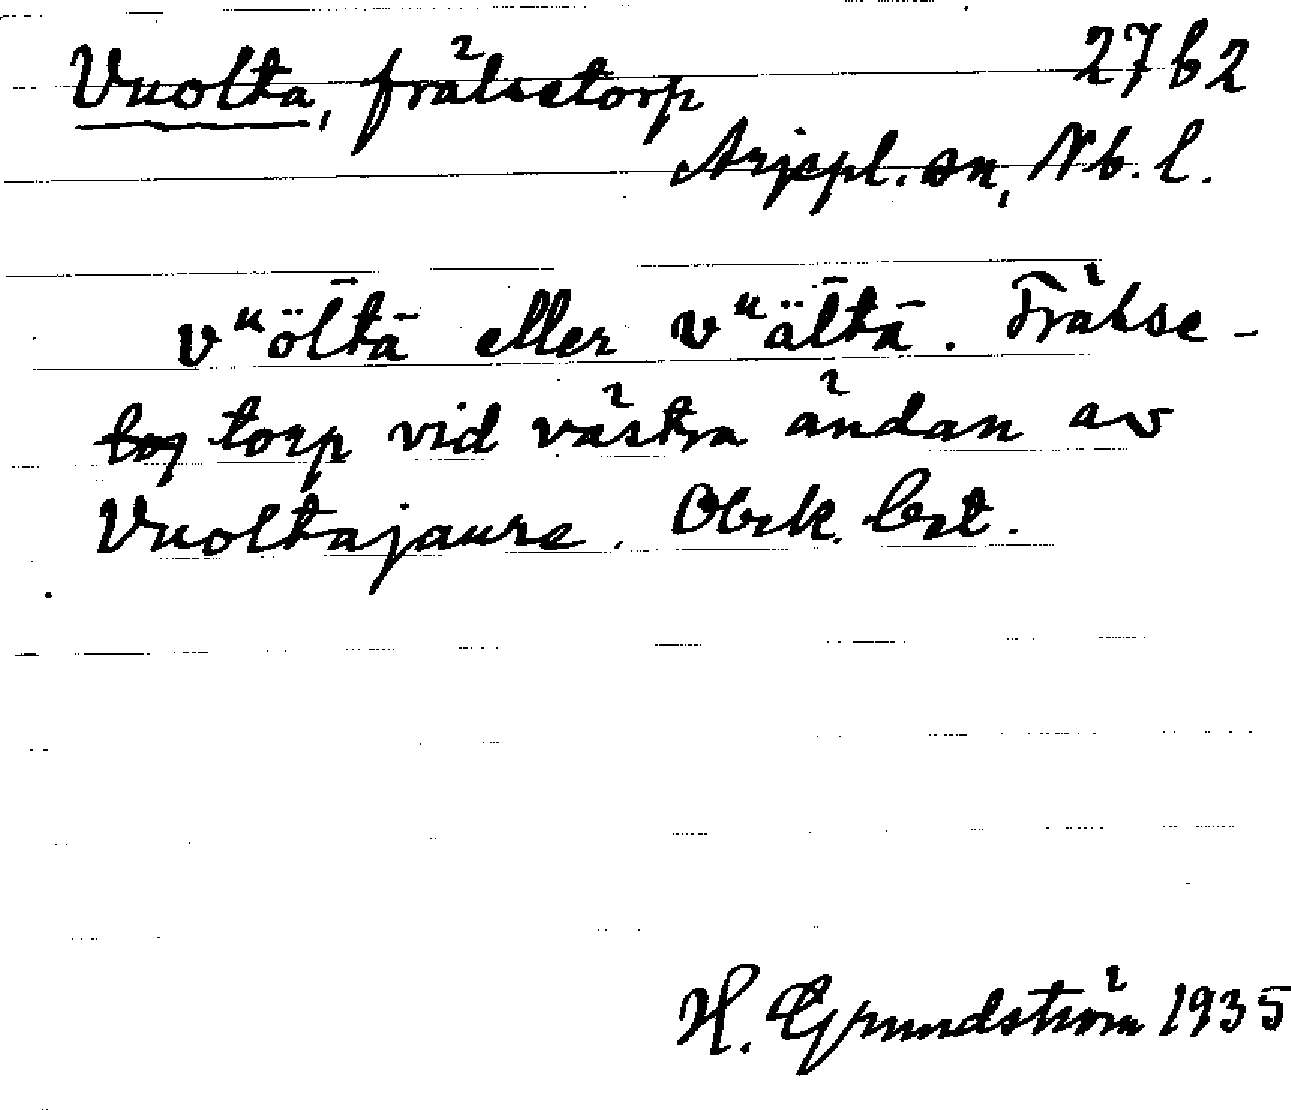 Vuolta, frälsetorp 27 b 2
Arjepl. sn, Nb. l.
vᵘöl̄tā eller vᵘäl̄tā. Frälse-
torp vid västra ändan av
Vuoltajaure. Obek. bet.
H. Grundström 1935